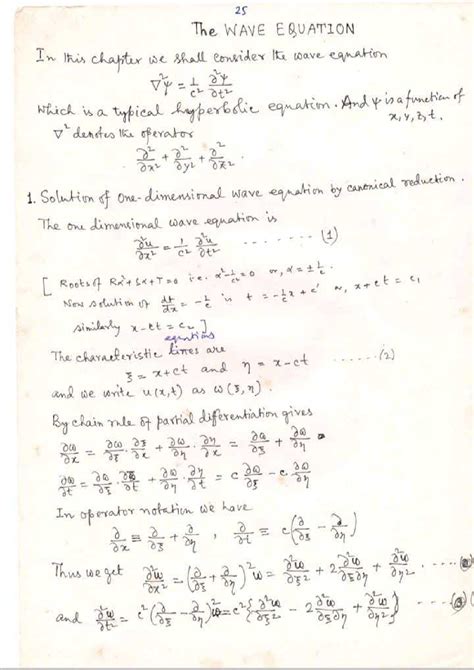 25
The WAVE EQUATION
In this chapter we shall consider the wave equation
∇²ψ = 1/c² ∂²ψ/∂t²
Which is a typical hyperbolic equation. And ψ is a function of
x, y, z, t.
∇² denotes the operator
∂²/∂x² + ∂²/∂y² + ∂²/∂z².
1. Solution of One-dimensional wave equation by canonical reduction.
The one dimensional wave equation is
∂²u/∂x² = 1/c² ∂²u/∂t² ...... (1)
[ Roots of Rα²+Sα+T=0 i.e. α² - 1/c² = 0 or, α = ± 1/c.
Now solution of dt/dx = -1/c is t = -1/c x + c' or, x+ct = c₁
similarly x-ct = c₂ ]
equations
The characteristic lines are
ξ = x+ct and η = x-ct ...... (2)
and we write u(x,t) as ω(ξ,η).
By chain rule of partial differentiation gives
∂ω/∂x = ∂ω/∂ξ · ∂ξ/∂x + ∂ω/∂η · ∂η/∂x = ∂ω/∂ξ + ∂ω/∂η
∂ω/∂t = ∂ω/∂ξ · ∂ξ/∂t + ∂ω/∂η · ∂η/∂t = c ∂ω/∂ξ - c ∂ω/∂η
In operator notation we have
∂/∂x ≡ ∂/∂ξ + ∂/∂η , ∂/∂t ≡ c(∂/∂ξ - ∂/∂η)
Thus we get ∂²ω/∂x² = (∂/∂ξ + ∂/∂η)² ω = ∂²ω/∂ξ² + 2 ∂²ω/∂ξ∂η + ∂²ω/∂η² ...
and ∂²ω/∂t² = c²(∂/∂ξ - ∂/∂η)² ω = c² {∂²ω/∂ξ² - 2 ∂²ω/∂ξ∂η + ∂²ω/∂η²} ...